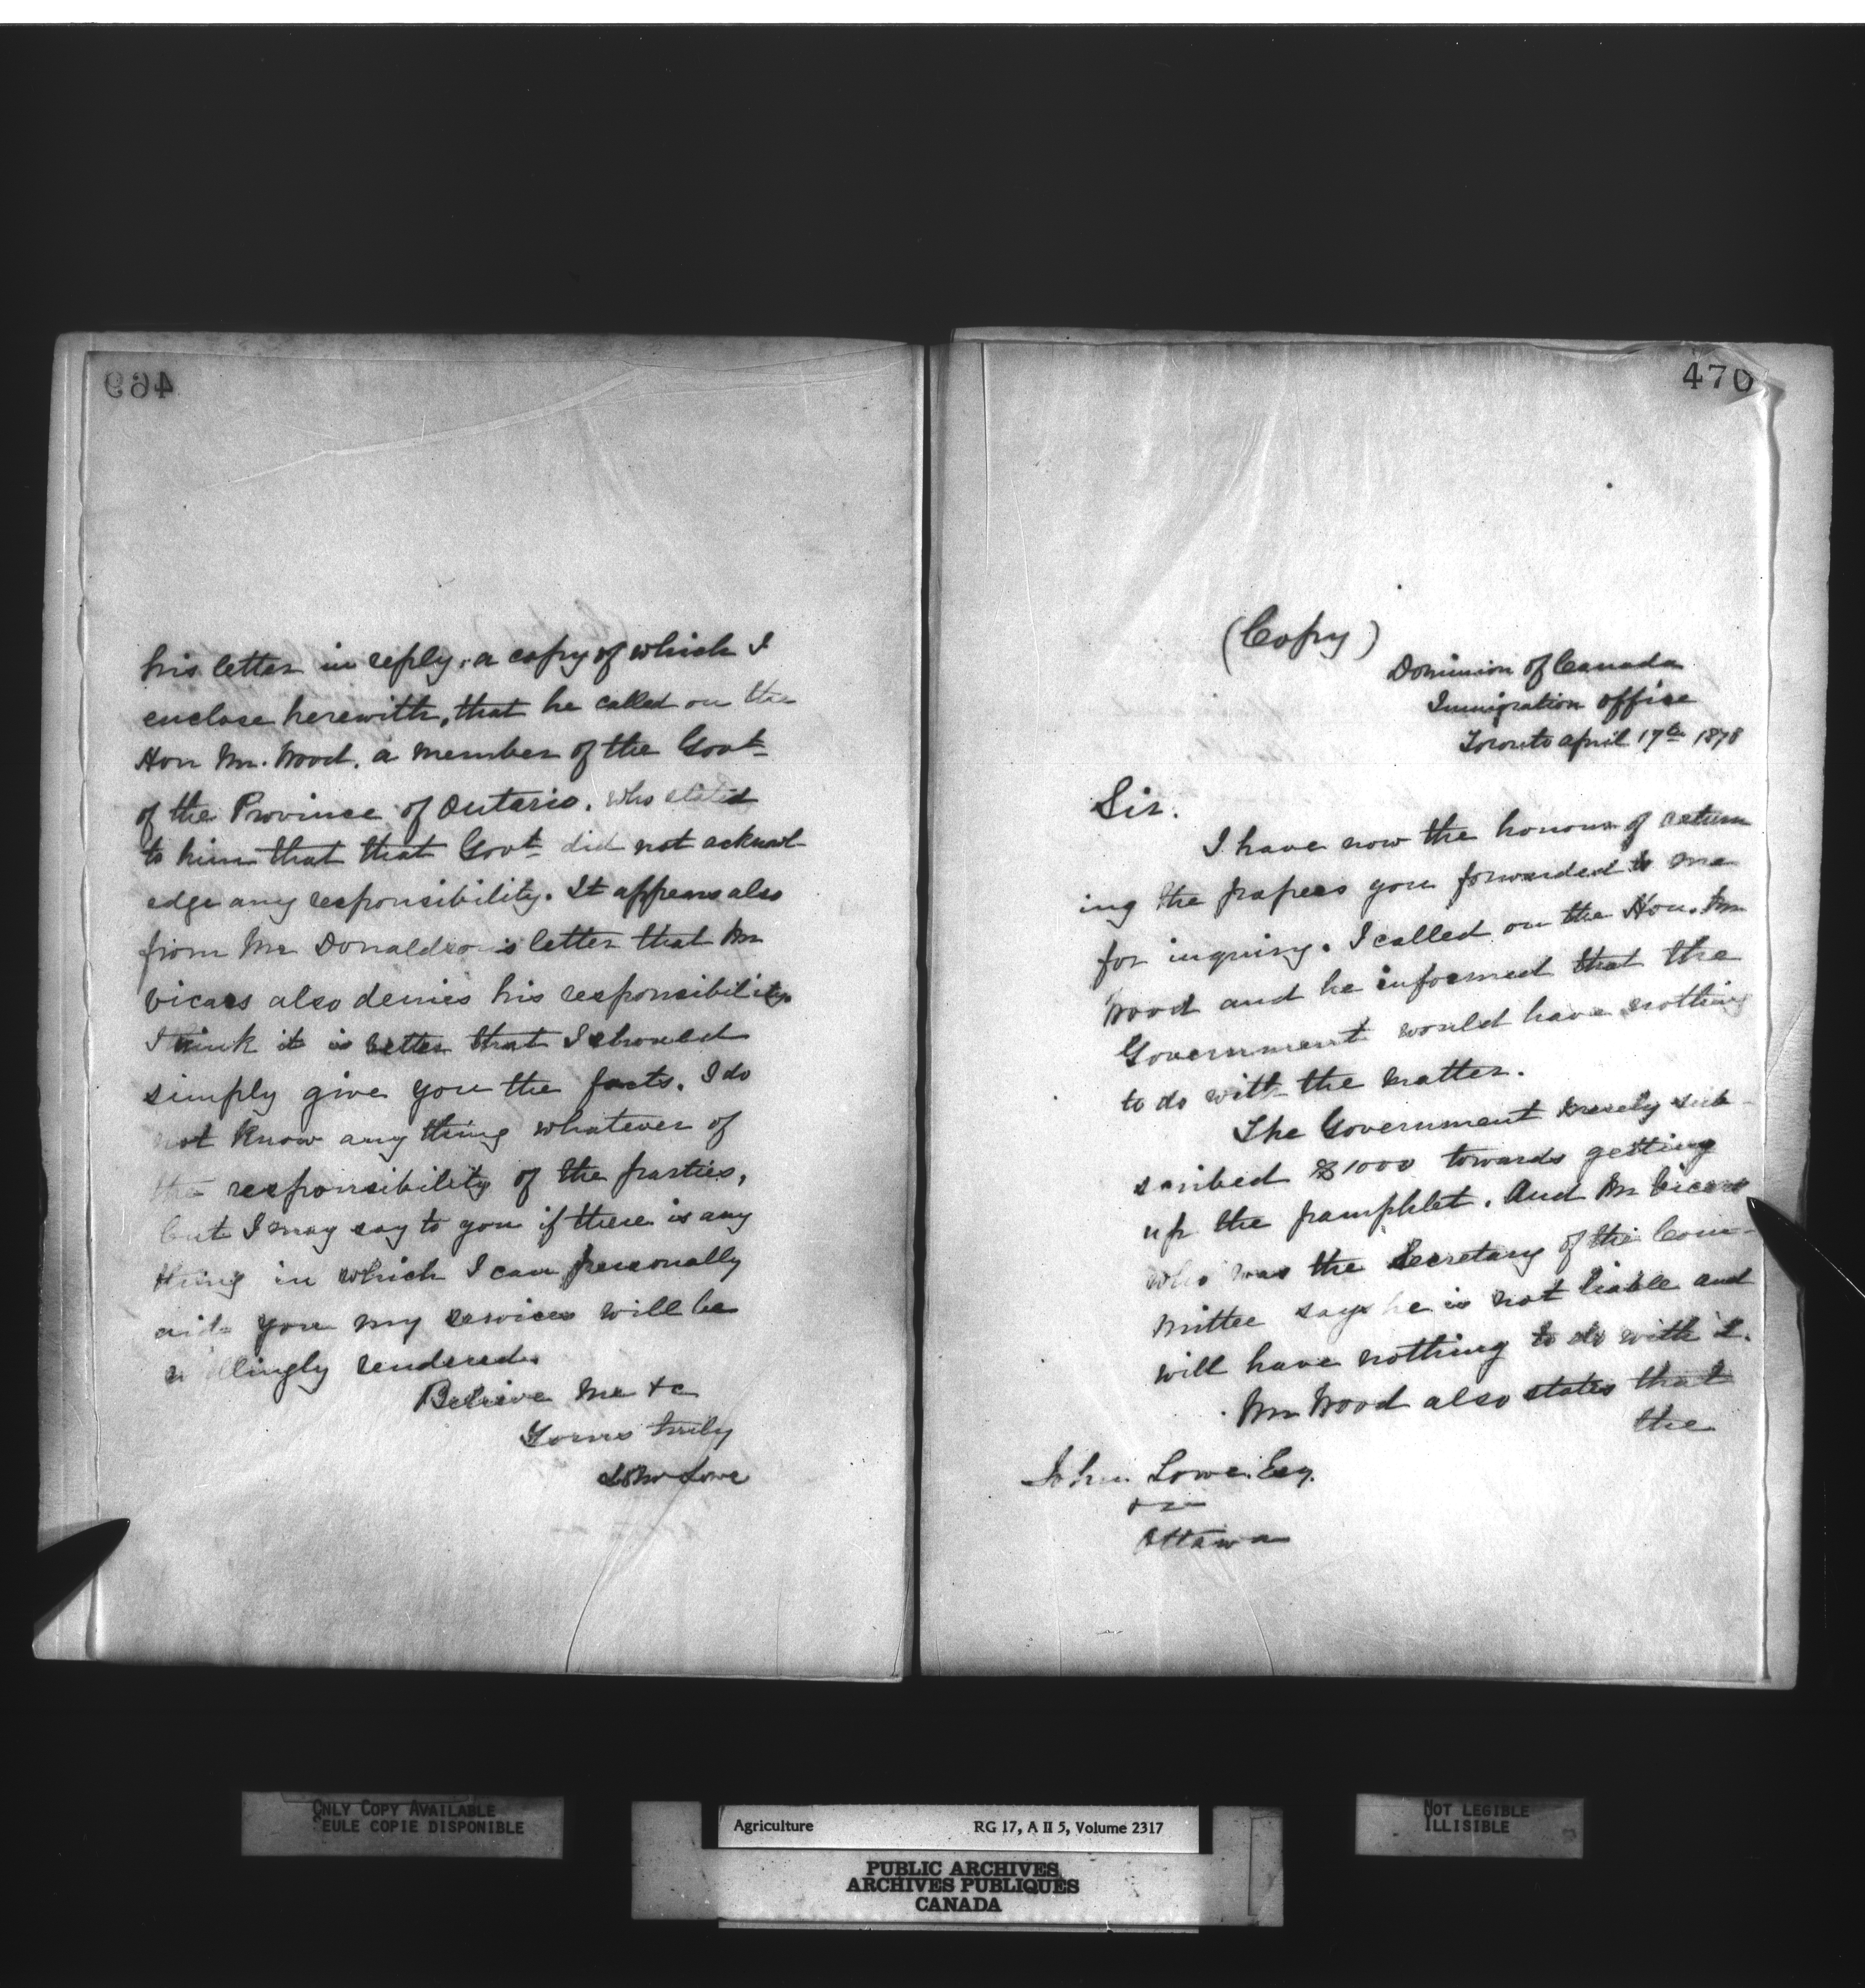 469
his letter in reply, a copy of which I
enclose herewith, that he called on the
Hon Mr. Wood, a member of the Govt
of the Province of Ontario, who stated
to him that that Govt did not acknowl-
edge any responsibility. It appears also
from Mr Donaldson's letter that Mr
Vicars also denies his responsibility.
I think it is better that I should
simply give you the facts. I do
not know any thing whatever of
the responsibility of the parties,
but I may say to you if there is any
thing in which I can personally
aid you my services will be
willingly rendered.
Believe me &c
Yours truly
John Lowe
470
(Copy)
Dominion of Canada
Immigration Office
Toronto April 17th 1878
Sir.
I have now the honour of return
ing the papers you forwarded to me
for inquiry. I called on the Hon. Mr
Wood and he informed that the
Government would have nothing
to do with the matter.
The Government merely sub-
scribed $1000 towards getting
up the pamphlet. And Mr Vicars
who was the Secretary of the Com-
mittee says he is not liable and
will have nothing to do with it.
Mr Wood also states that
the
John Lowe. Esq.
&c
Ottawa
ONLY COPY AVAILABLE
SEULE COPIE DISPONIBLE
Agriculture RG 17, A II 5, Volume 2317
PUBLIC ARCHIVES
ARCHIVES PUBLIQUES
CANADA
NOT LEGIBLE
ILLISIBLE